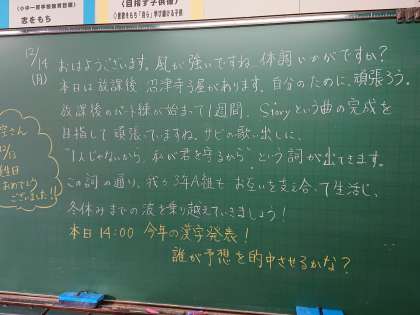 〈小中一貫学校教育目標〉
志をもち
〈目指す子供像〉
12/14
(月)
おはようございます。風が強いですね。体調いかがですか?
本日は放課後、沼津寺子屋があります。自分のために、頑張ろう。
放課後のパート練が始まって1週間。Storyという曲の完成を
目指して頑張っていますね。サビの歌い出しに、
"1人じゃないから 私が君を守るから"という詞が出てきます。
この詞の通り、我が3年A組もお互いを支え合って生活し、
冬休みまでの波を乗り越えていきましょう!
本日14:00 今年の漢字発表!
誰が予想を的中させるかな?
さん
12/13
生日
おめでとう
ございました!!